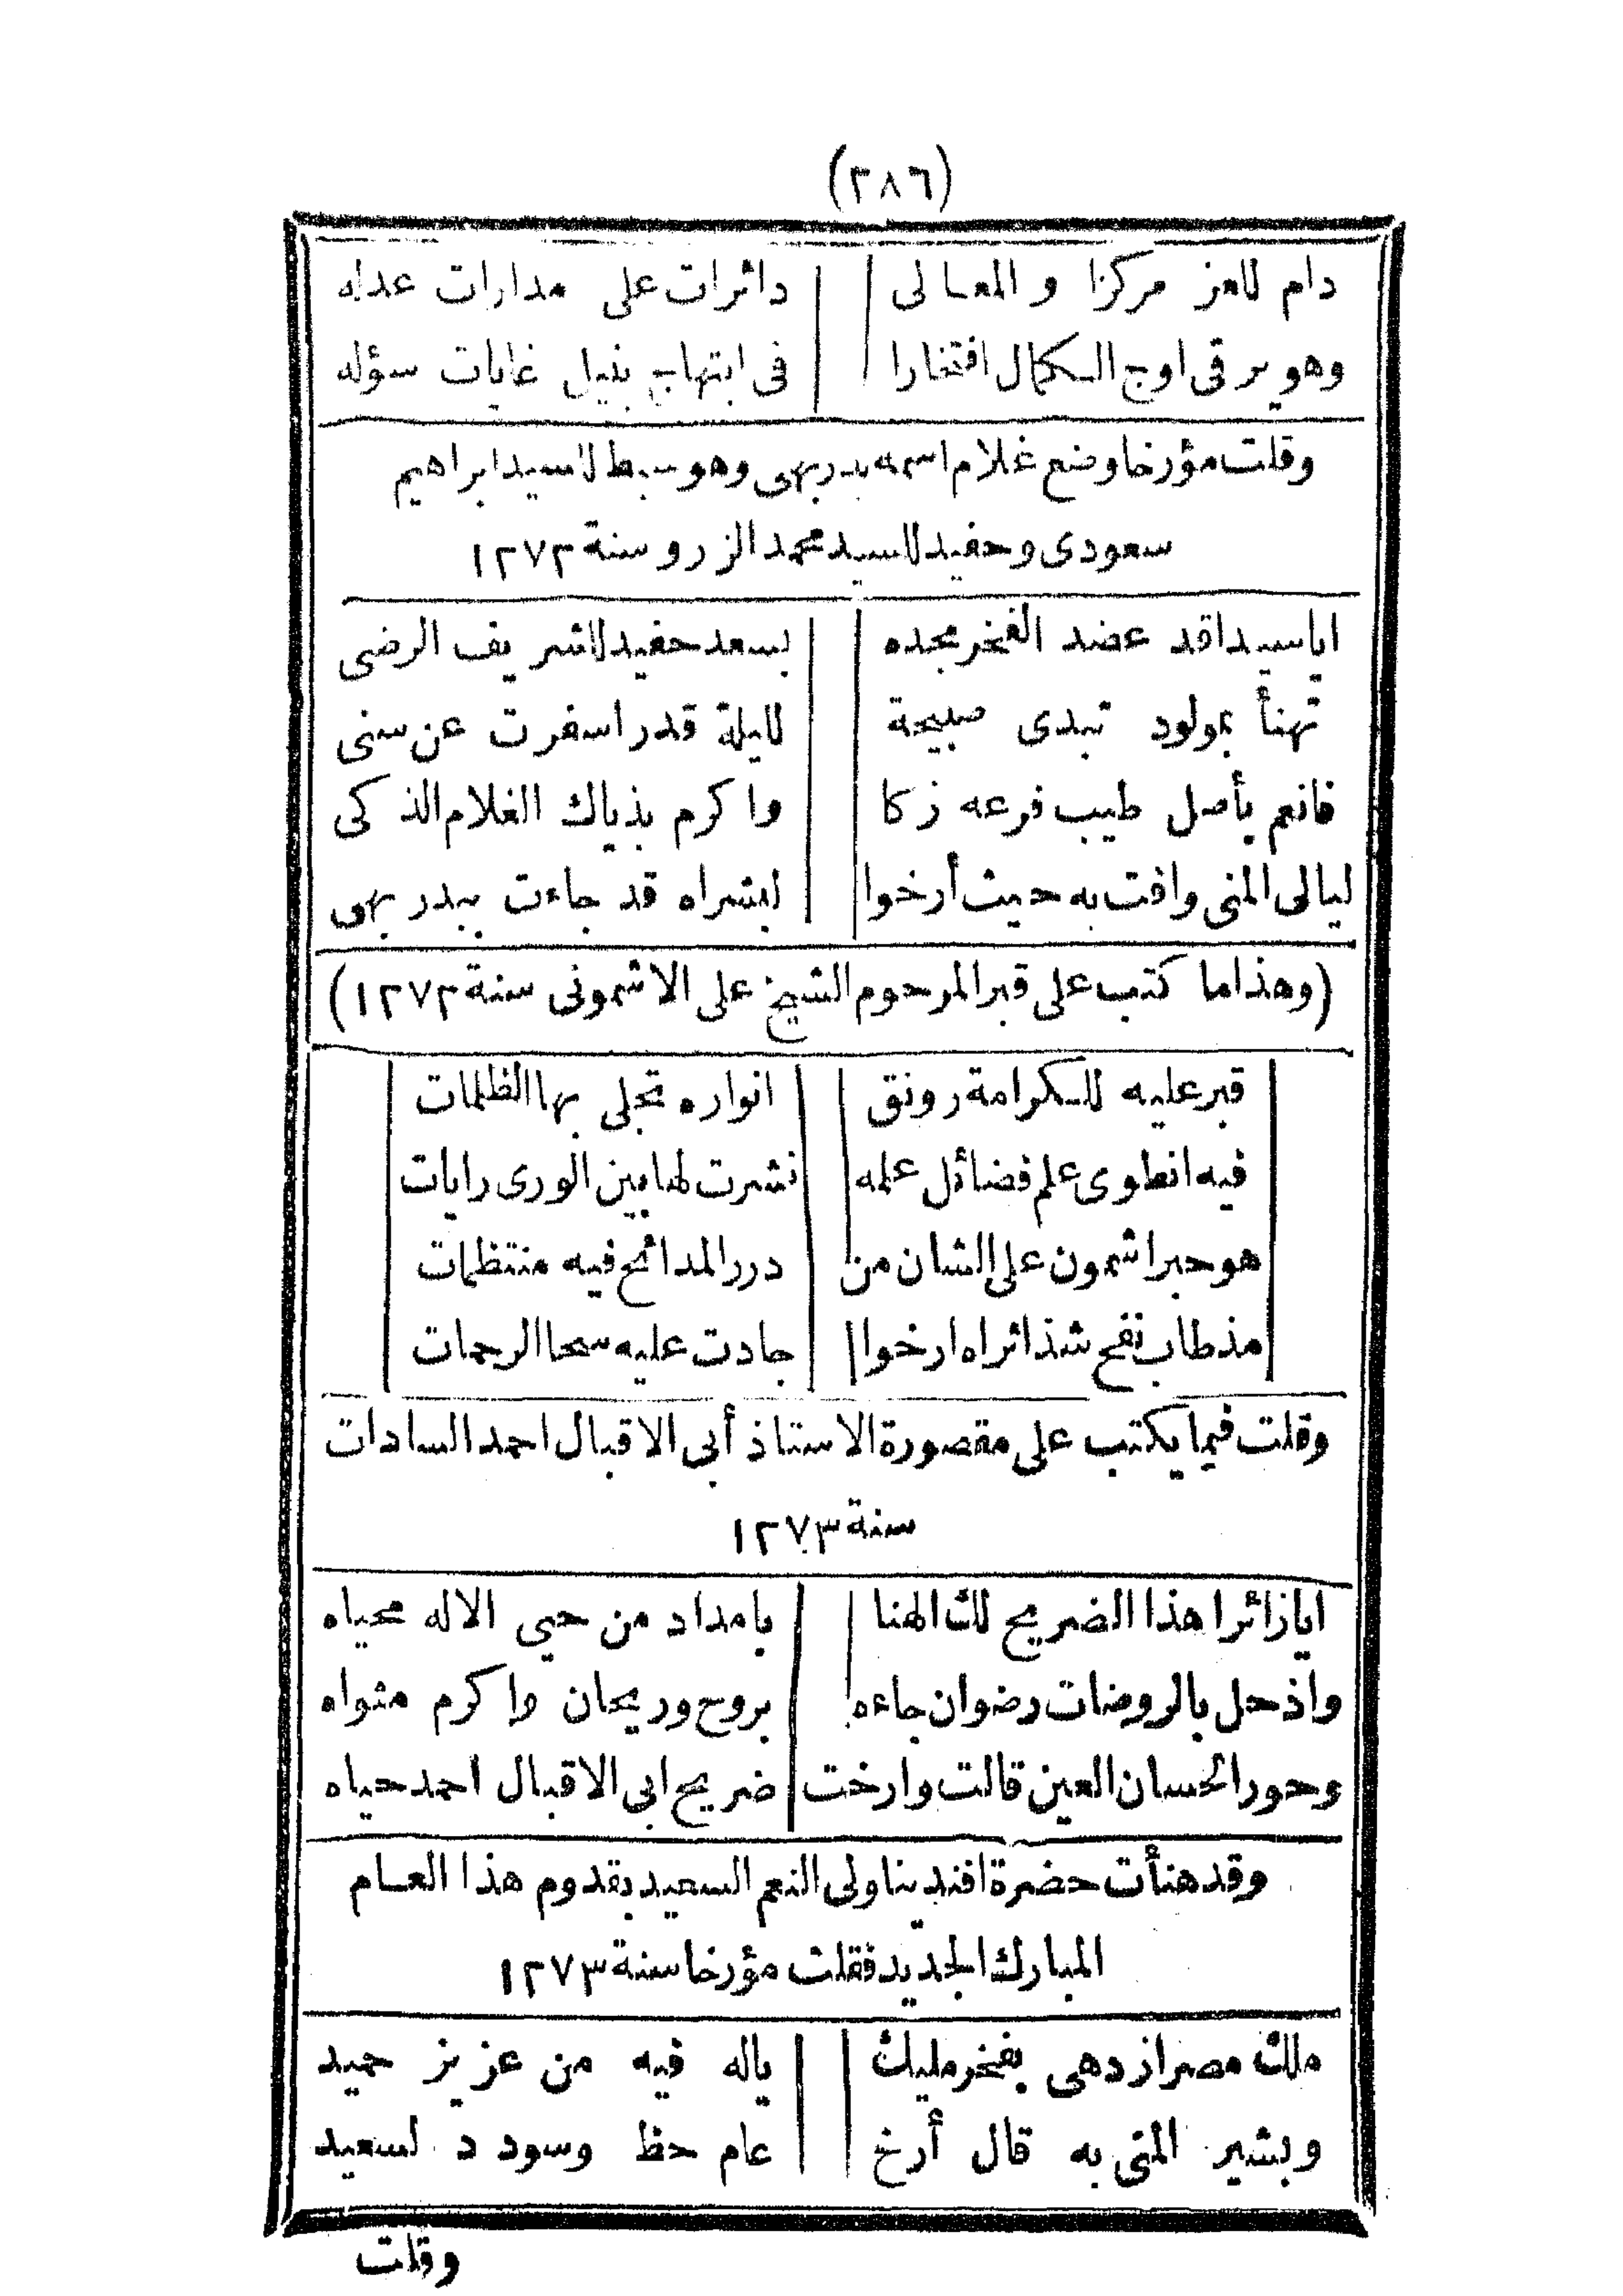 (٢٨٦)
دام للعز مركزا و المعالى دائرات على مدارات عداه
وهو يرقى اوج الكمال افتخارا فى ابتهاج بنيل غايات سؤله
وقلت مؤرخا وضع غلام اسمه بدر بهى وهو سبط للسيد ابراهيم
سعودى وحفيد للسيد محمد الزرو سنة ١٢٧٢
ايا سيدا قد عضد الفخر مجده بسعد حفيد للشريف الرضى
تهنأ بمولود تبدى صبيحة لليلة قدر اسفرت عن سنى
فانعم بأصل طيب فرعه زكا واكرم بذياك الغلام الذكى
ليالى المنى وافت به حيث أرخوا لبشراه قد جاءت ببدر بهى
(وهذا ما كتب على قبر المرحوم الشيخ على الاشمونى سنة ١٢٧٢)
قبر عليه للكرامة رونق انواره تجلى بها الظلمات
فيه انطوى علم فضائل علمه نشرت لها بين الورى رايات
هو حبر اشمون على الشان من درر المدائح فيه منتظمات
مذ طاب نفح شذا ثراه ارخوا جادت عليه سحا الرحمات
وقلت فيما يكتب على مقصورة الاستاذ أبى الاقبال احمد السادات
سنة ١٢٧٣
ايا زائرا هذا الضريح لك الهنا بامداد من حيى الاله محياه
واذ حل بالروضات رضوان جاءه بروح وريحان واكرم مثواه
وحور الحسان العين قالت وارخت ضريح ابى الاقبال احمد حياه
وقد هنأت حضرة افندينا ولى النعم السعيد بقدوم هذا العام
المبارك الجديد فقلت مؤرخا سنة ١٢٧٣
ملك مصر ازدهى بفخر مليك ياله فيه من عزيز حميد
وبشير المنى به قال أرخ عام حظ وسودد لسعيد
وقلت